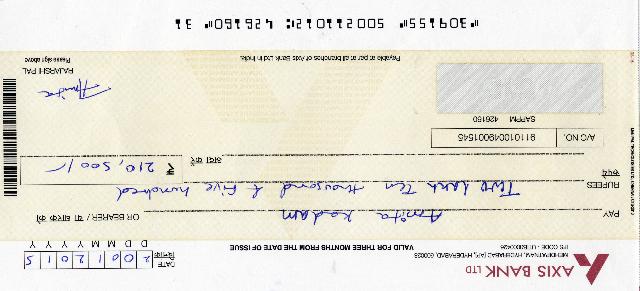 AXIS BANK LTD
MEHDIPATNAM, HYDERABAD (AP), HYDERABAD, 600028
IFS CODE - UTIB0000426
VALID FOR THREE MONTHS FROM THE DATE OF ISSUE
दिनांक DATE 20012015
D D M M Y Y Y Y
PAY Amita Kadam OR BEARER / या धारक को
RUPEES Two Lakh Ten thousand & Five hundred
रुपये अदा करें ₹ 210,500/-
A/C NO. 911010049001545
SAPPM 426160
Payable at par at all branches of Axis Bank Ltd in India.
Amita
RAJARSHI PAL
Please sign above
"309155" 500211012: 426160" 31